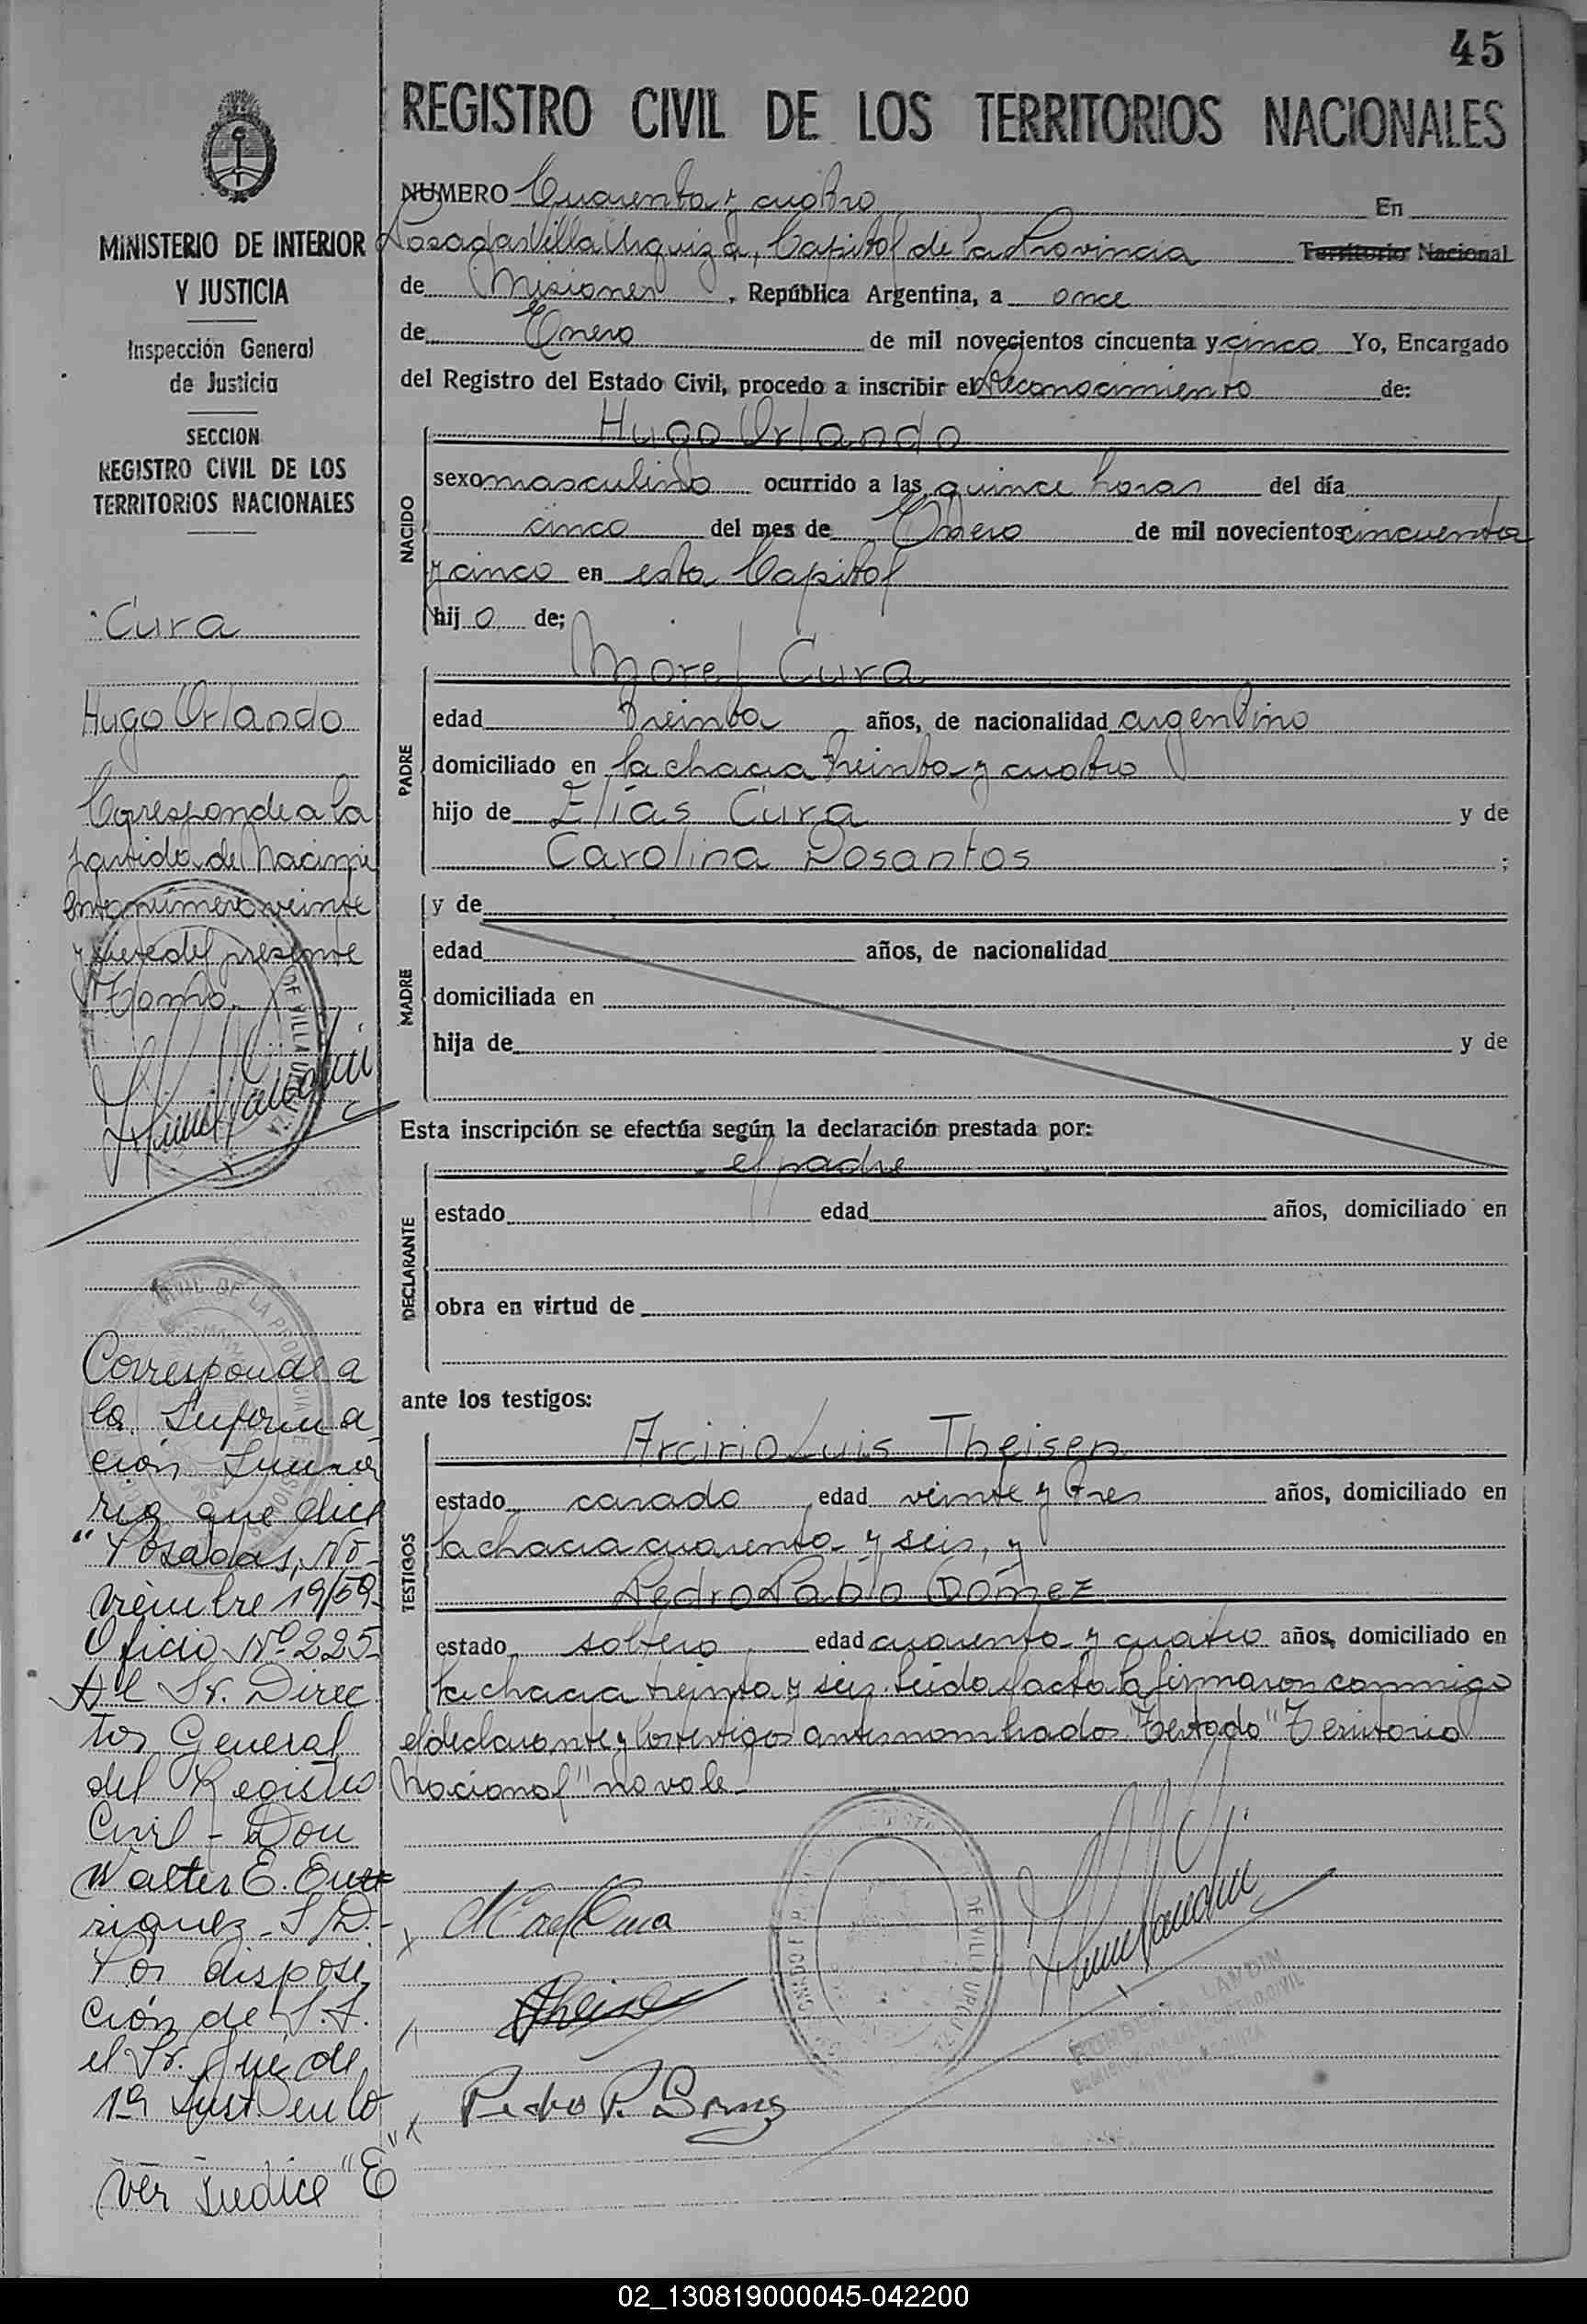 45
REGISTRO CIVIL DE LOS TERRITORIOS NACIONALES
MINISTERIO DE INTERIOR
Y JUSTICIA
Inspección General
de Justicia
SECCION
REGISTRO CIVIL DE LOS
TERRITORIOS NACIONALES
Cura
Hugo Orlando
Corresponde a la
partida de Nacimi
ento número veinte
y siete del presente
Tomo.
DE VILLA URQUIZA
Corresponde a
la Informa
ción Suma
ria que dice
"Posadas, No-
viembre 19/59-
Oficio Nº 225-
Al Sr. Direc
tor General
del Registro
Civil - Don
Walter E. Enr
riquez - S/D.-
Por disposi
ción de S.S.
el Sr. Juez de
1ª Inst. en lo
ver indice "E"
NUMERO Cuarenta y cuatro En
Posadas Villa Urquiza, Capital de la Provincia Territorio Nacional
de Misiones, República Argentina, a once
de Enero de mil novecientos cincuenta y cinco Yo, Encargado
del Registro del Estado Civil, procedo a inscribir el Reconocimiento de:
NACIDO
Hugo Orlando
sexo masculino ocurrido a las quince horas del día
cinco del mes de Enero de mil novecientos cincuenta
y cinco en esta Capital
hijo de;
PADRE
Morel Cura
edad treinta años, de nacionalidad argentino
domiciliado en la chacra treinta y cuatro
hijo de Elías Cura y de
Carolina Dosantos ;
MADRE
y de
edad años, de nacionalidad
domiciliada en
hija de y de
Esta inscripción se efectúa según la declaración prestada por:
DECLARANTE
el padre
estado edad años, domiciliado en
obra en virtud de
ante los testigos:
TESTIGOS
Arcirio Luis Theisen
estado casado edad veinte y tres años, domiciliado en
la chacra cuarenta y seis, y
Pedro Pablo Gómez
estado soltero edad cuarenta y cuatro años, domiciliado en
la chacra treinta y seis. Leida el acta la firmaron conmigo
el declarante y los testigos antes nombrados. Testado "Territorio
Nacional" no vale-
DE VILLA URQUIZA
LANDIN
02_130819000045-042200